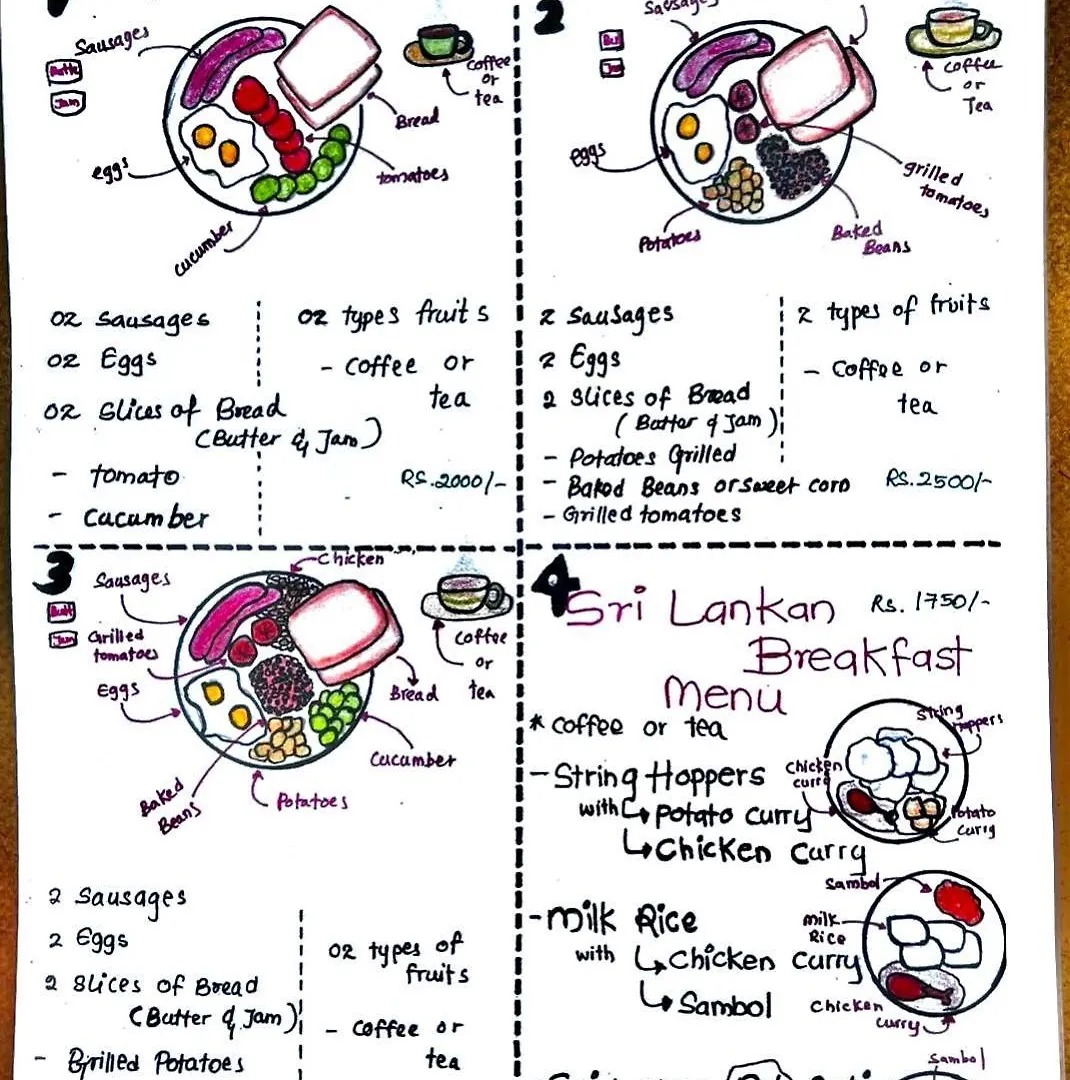 1
Sausages
Butte
Jam
coffee
or
tea
Bread
eggs
tomatoes
cucumber
02 Sausages
02 Eggs
02 Slices of Bread
(Butter & Jam)
- tomato
- cucumber
02 types fruits
- coffee or
tea
RS.2000/-
2
Sausages
But
Jam
coffee
or
Tea
eggs
grilled
tomatoes
Potatoes
Baked
Beans
2 Sausages
2 Eggs
2 Slices of Bread
(Butter & Jam)
- Potatoes Grilled
- Baked Beans or sweet corn
- Grilled tomatoes
2 types of fruits
- Coffee or
tea
RS.2500/-
3
Chicken
Sausages
Butt
Jam
Grilled
tomatoes
Eggs
coffee
or
tea
Bread
Cucumber
Baked
Beans
Potatoes
2 Sausages
2 Eggs
2 Slices of Bread
(Butter & Jam)
- Grilled Potatoes
02 types of
fruits
- coffee or
tea
4
Sri Lankan Rs. 1750/-
Breakfast
Menu
* coffee or tea
- String Hoppers
with Potato curry
Chicken Curry
String
Hoppers
Chicken
curry
Potato
Curry
- Milk Rice
with Chicken Curry
Sambol
Sambol
milk
Rice
Chicken
curry
Sambol